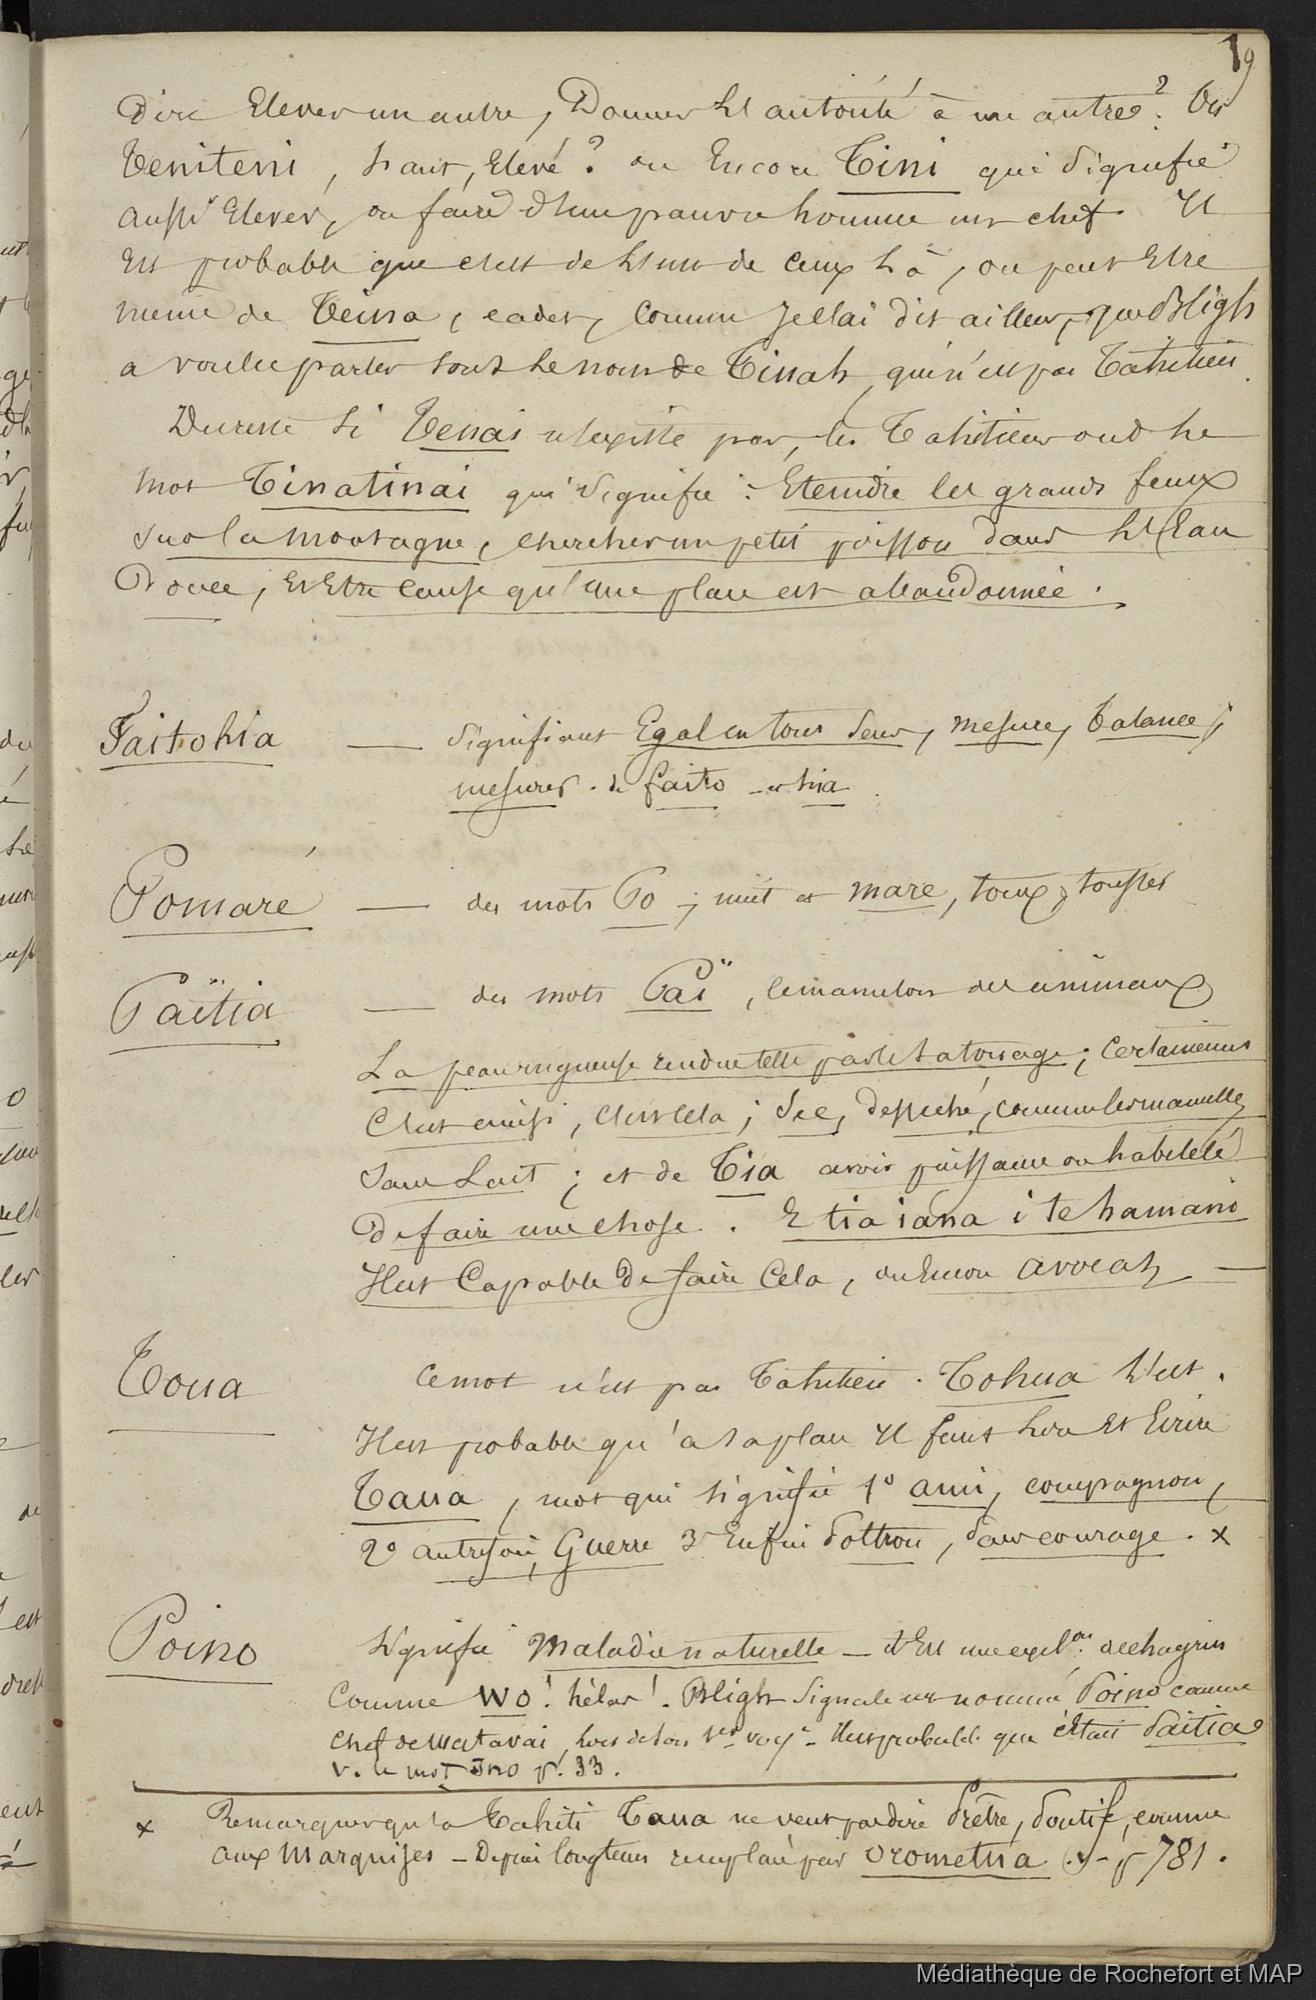 19
Dire Elever un autre, Donner de l'autorité à un autre? Ou
Teniteni, haut, Elevé? ou Encore Tini qui signifie
aussi Elever, ou faire d'un pauvre homme un chef. Il
Est probable que c'est de l'un de ceux là, ou peut Etre
meme de Teina, cadet, comme je l'ai dit ailleurs, que Bligh
a voulu parler sous le nom de Tinah, qui n'est pas Tahitien.
Du reste si Tenai n'existe pas, les Tahitiens ont le
mot Tinatinai qui signifie: Eteindre les grands feux
sur la montagne, chercher un petit poisson dans l'Eau
Douce, Et Etre cause qu'une place est abandonnée.
Faitohia — signifiant Egal en tous sens, mesure, balance;
mesurer. de faito et hia.
Pomaré — des mots Po; nuit et mare, toux, tousser
Païtia — des mots Paï, le mamelon des animaux
La peau rugueuse rendue telle par le tatouage; Certainement
C'est ainsi, C'est Cela; Sec, desséché, comme les mamelles
sans Lait; et de Tia avoir puissance ou habileté
De faire une chose. E tia iana i te hamani
Il est Capable De faire Cela, ou Encore avocat —
Toua Ce mot n'est pas Tahitien. Tohua l'est.
Il est probable qu'à sa place Il faut lire Et Ecrire
Taua, mot qui signifie 1º ami, compagnon,
2º autrefois, Guerre 3º Enfin Poltron, sans courage. x
Poino Signifie Maladie naturelle — et Est une excl.on de chagrin
Comme wo! hélas!. Bligh signale un nommé Poino comme
Chef de Matavai, lors de son 1er voy.e Il est probable que c'était Paitia
V. le mot Ino p. 33.
x Remarquer qu'à Tahiti Taua ne veut pas dire Prêtre, Pontife, comme
aux Marquises — Depuis longtems remplacé par Orometua (v) - p 781.
Médiathèque de Rochefort et MAP